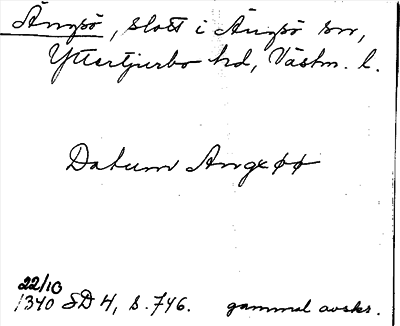 Ängsö, slott i Ängsö sn,
Yttertjurbo hd, Västm. l.
Datum Angexøø
22/10
1340 SD 4, s. 746. gammal avskr.